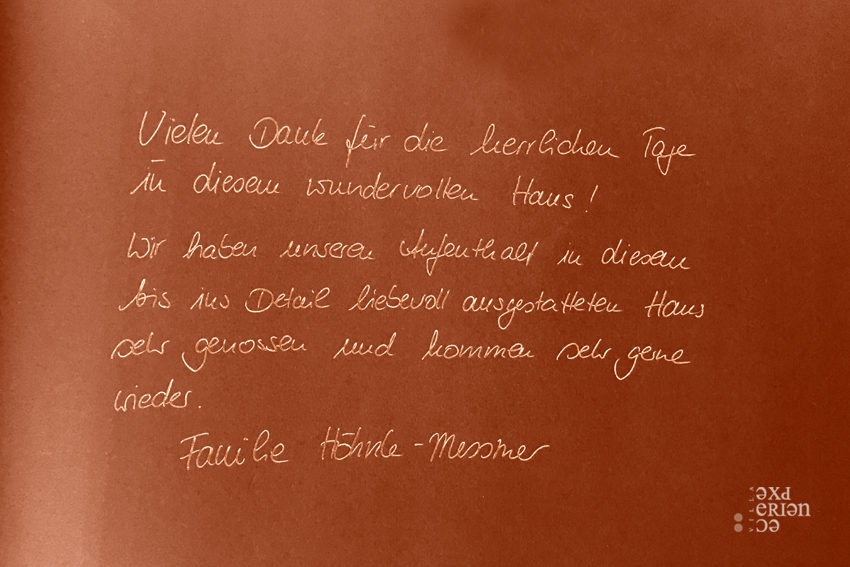 Vielen Dank für die herrlichen Tage
in diesem wundervollen Haus!
Wir haben unseren Aufenthalt in diesem
bis ins Detail liebevoll ausgestatteten Haus
sehr genossen und kommen sehr gerne
wieder.
Familie Messmer
VILLA
EXPERIENCE